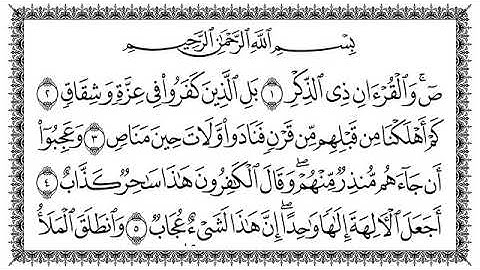 بِسْمِ ٱللَّهِ ٱلرَّحْمَٰنِ ٱلرَّحِيمِ
صٓ ۚ وَٱلْقُرْءَانِ ذِى ٱلذِّكْرِ ١ بَلِ ٱلَّذِينَ كَفَرُوا۟ فِى عِزَّةٍ وَشِقَاقٍ ٢
كَمْ أَهْلَكْنَا مِن قَبْلِهِم مِّن قَرْنٍ فَنَادَوا۟ وَّلَاتَ حِينَ مَنَاصٍ ٣ وَعَجِبُوٓا۟
أَن جَآءَهُم مُّنذِرٌ مِّنْهُمْ ۖ وَقَالَ ٱلْكَٰفِرُونَ هَٰذَا سَٰحِرٌ كَذَّابٌ ٤
أَجَعَلَ ٱلْءَالِهَةَ إِلَٰهًا وَٰحِدًا ۖ إِنَّ هَٰذَا لَشَىْءٌ عُجَابٌ ٥ وَٱنطَلَقَ ٱلْمَلَأُ